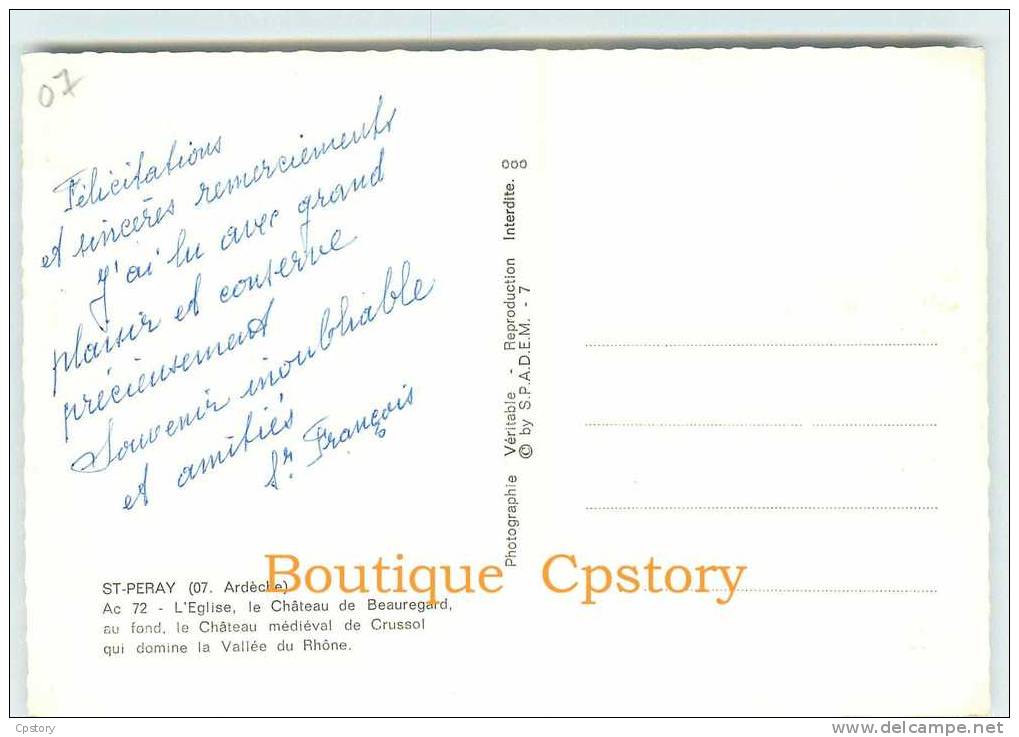 07
Félicitations
et sincères remerciements
J'ai lu avec grand
plaisir et conserve
précieusement
Souvenir inoubliable
et amitiés
Sr. François
Photographie Véritable - Reproduction Interdite.
© by S.P.A.D.E.M. - 7
ST-PERAY (07. Ardèche)
Ac 72 - L'Eglise, le Château de Beauregard,
au fond, le Château médiéval de Crussol
qui domine la Vallée du Rhône.
Boutique Cpstory
Cpstory
www.delcampe.net